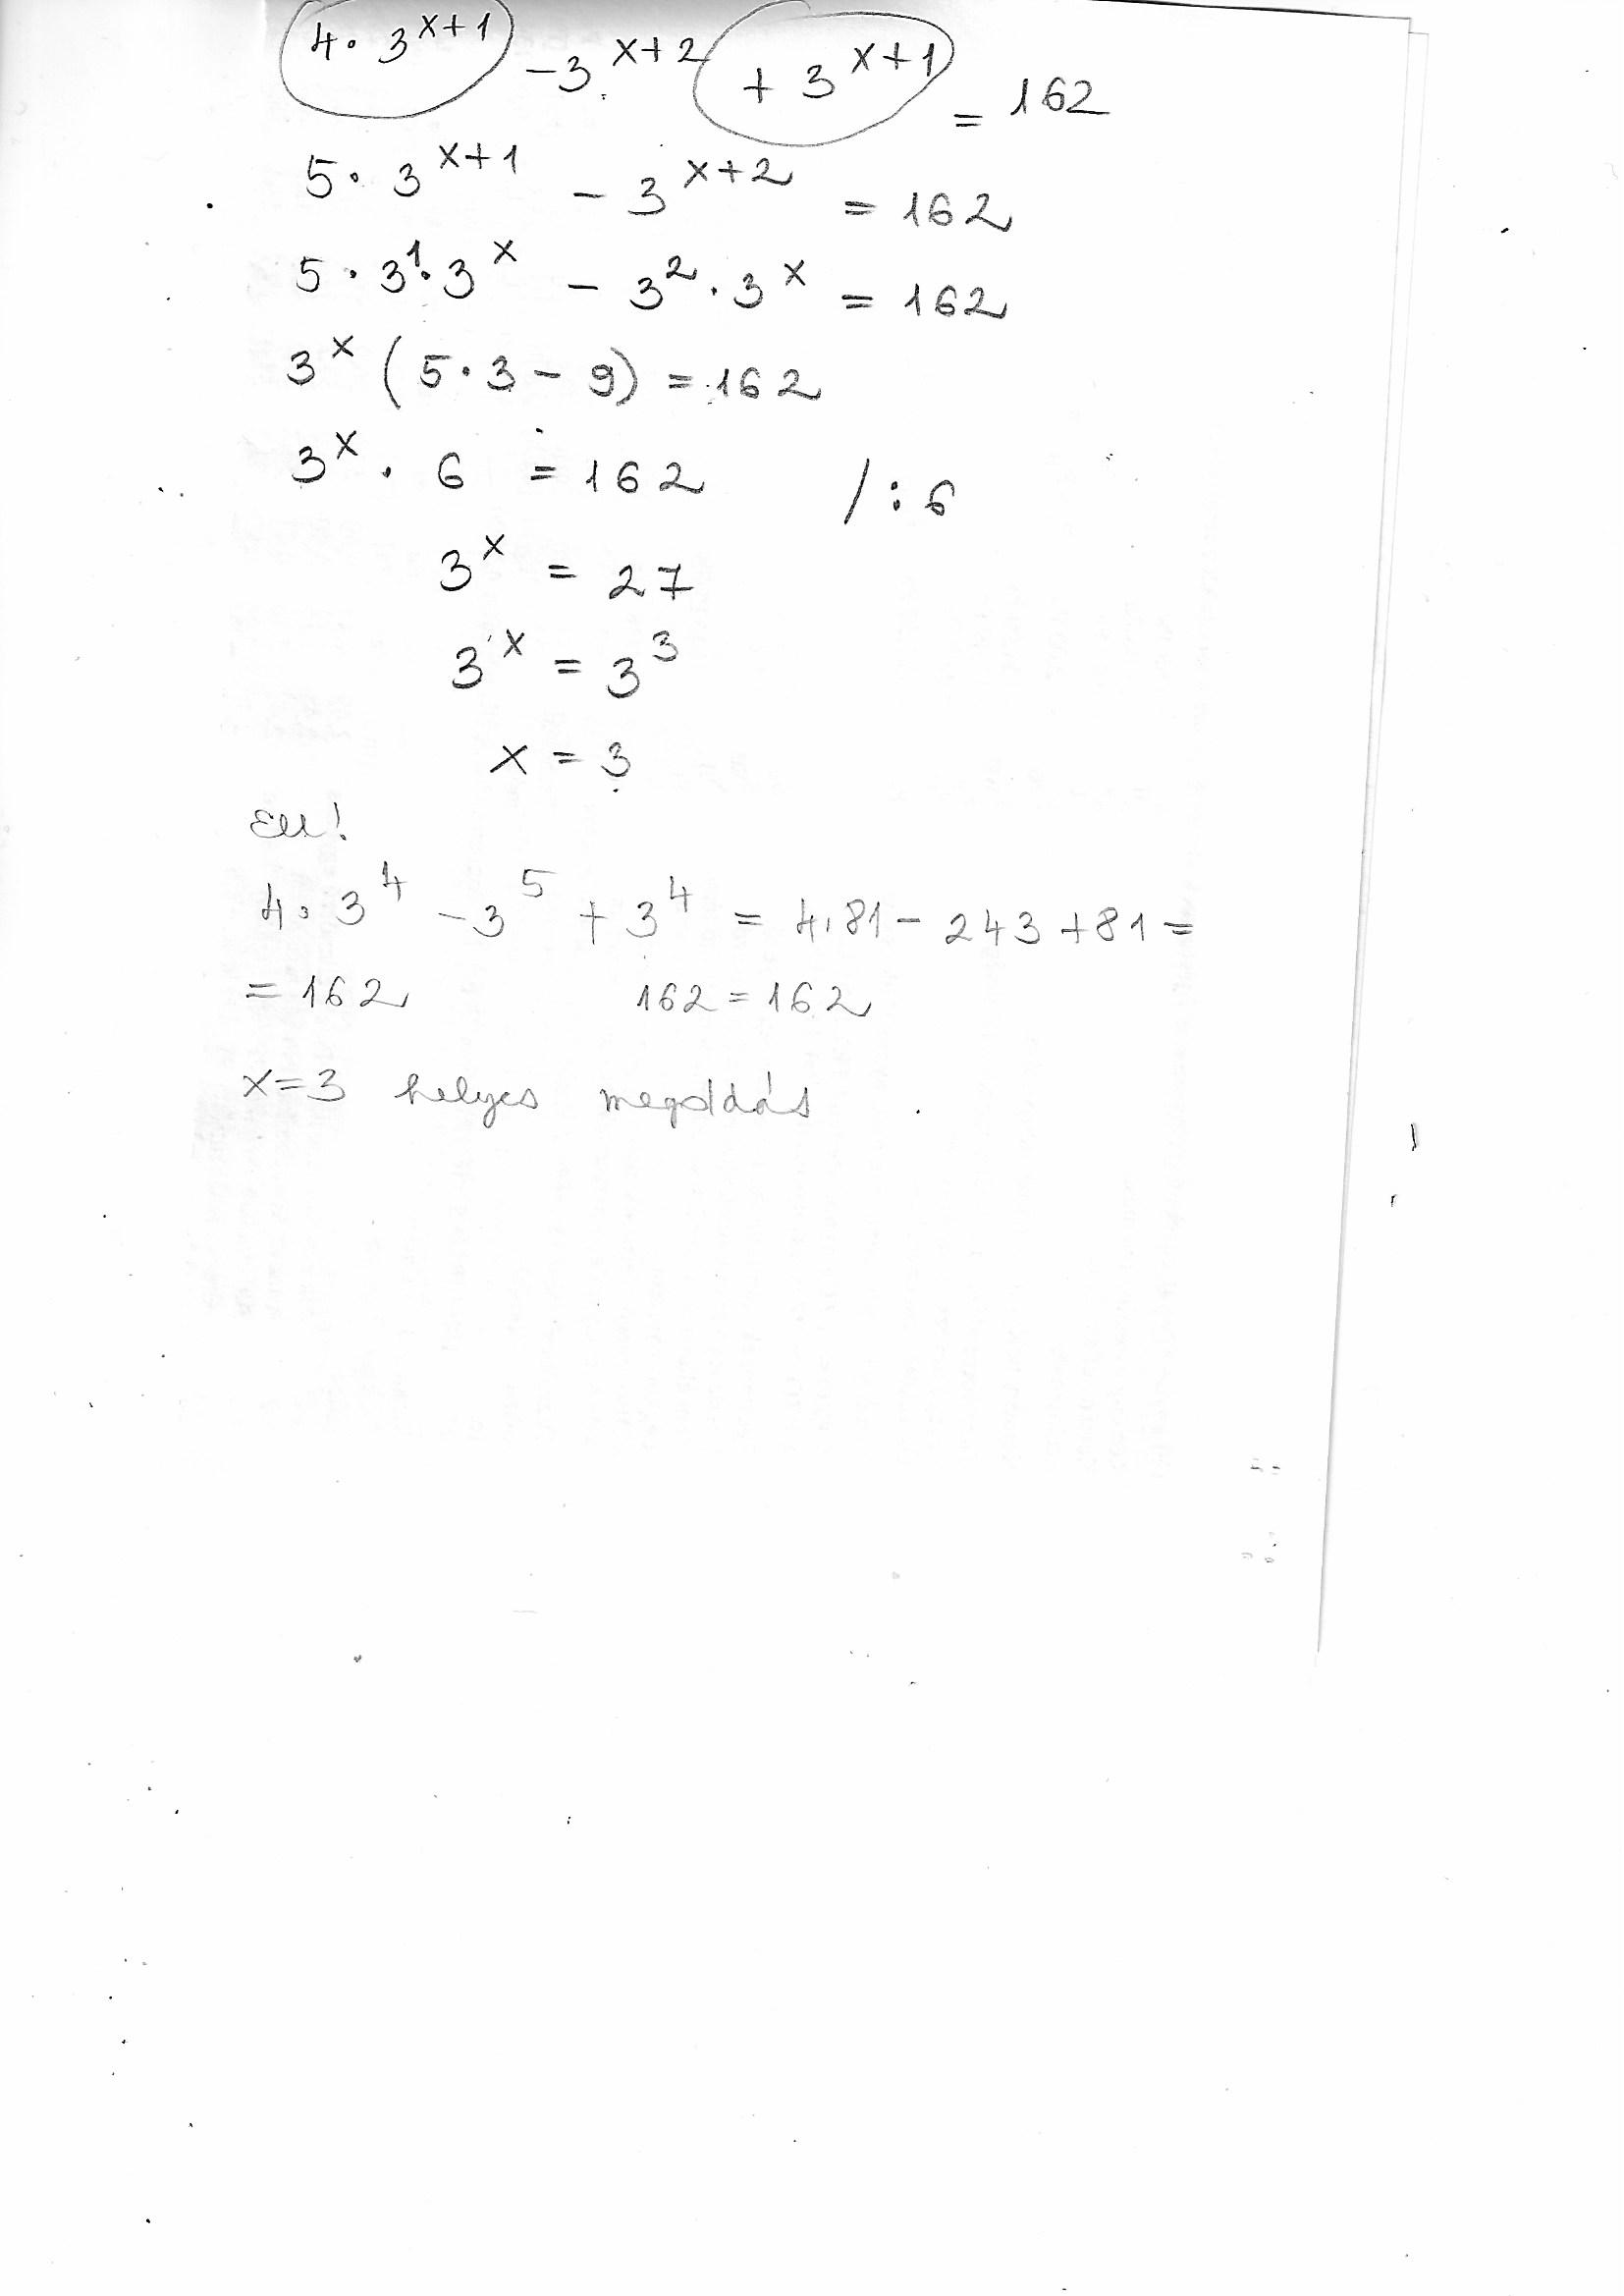 4·3^(x+1) -3^(x+2) + 3^(x+1) = 162
5·3^(x+1) - 3^(x+2) = 162
5·3^1·3^x - 3^2·3^x = 162
3^x (5·3-9) = 162
3^x · 6 = 162 /:6
3^x = 27
3^x = 3^3
x = 3
Ell!
4·3^4 -3^5 + 3^4 = 4·81 - 243 +81 =
= 162 162 = 162
x=3 helyes megoldás